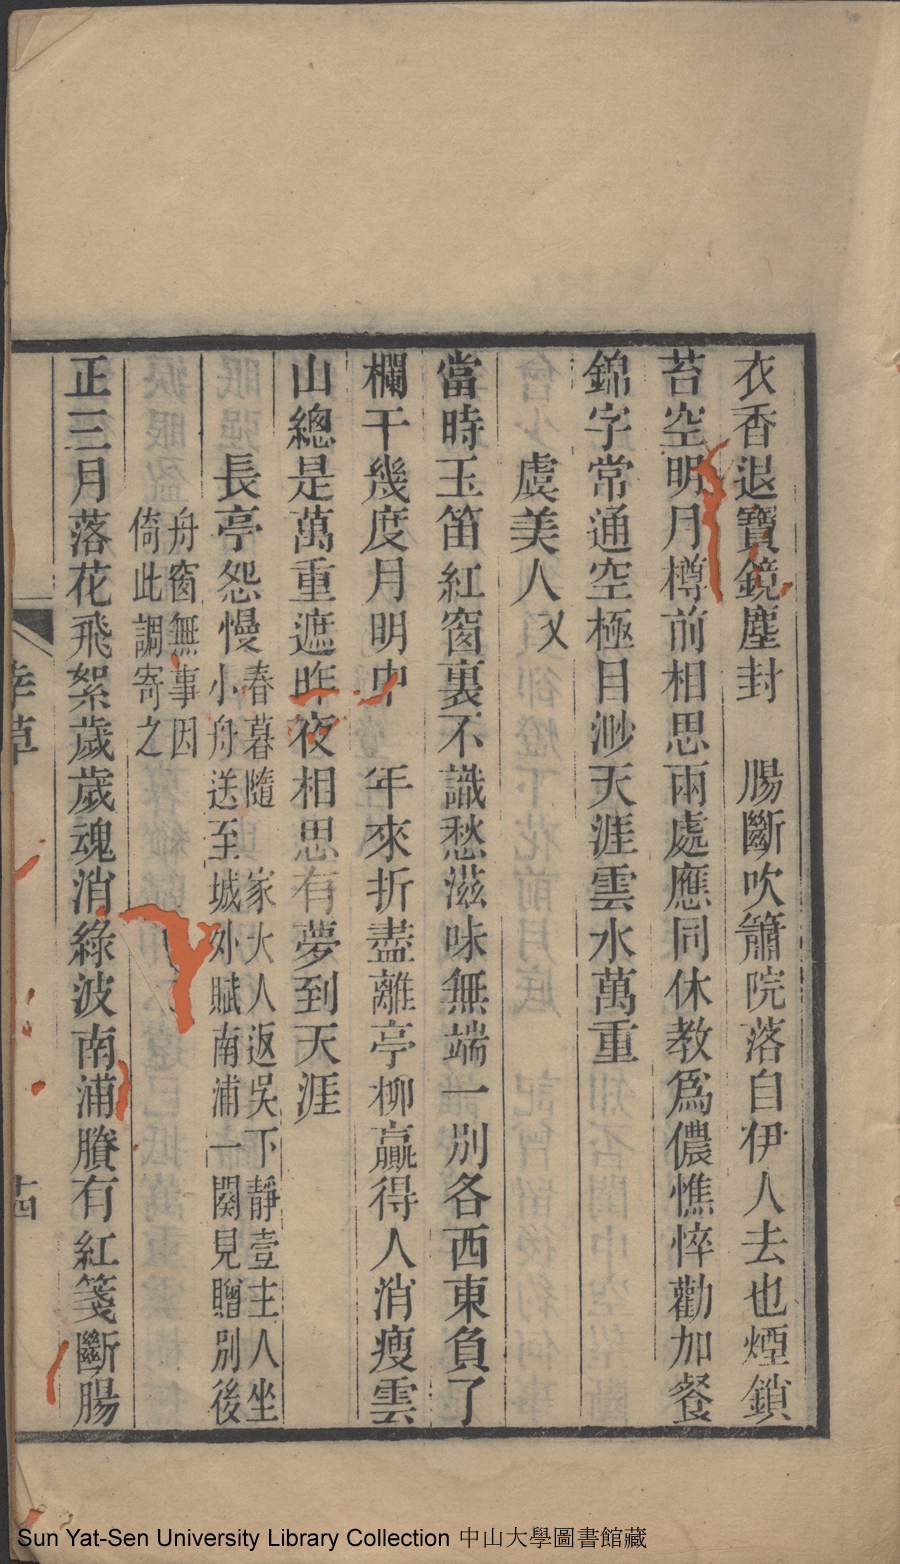 衣香退寶鏡塵封　腸斷吹簫院落自伊人去也煙鎖
苔空明月樽前相思兩處應同休教爲儂憔悴勸加餐
錦字常通空極目渺天涯雲水萬重
虞美人 又
當時玉笛紅窗裏不識愁滋味無端一別各西東負了
欄干幾度月明中　年來折盡離亭柳贏得人消瘦雲
山總是萬重遮昨夜相思有夢到天涯
長亭怨慢
春暮隨　家大人返吳下靜壹主人坐
小舟送至城外賦南浦一闋見贈別後
舟窗無事因
倚此調寄之
正三月落花飛絮歲歲魂消綠波南浦賸有紅箋斷腸
草
十四
Sun Yat-Sen University Library Collection 中山大學圖書館藏